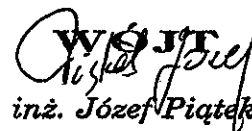 WÓJT
inż. Józef Piątek